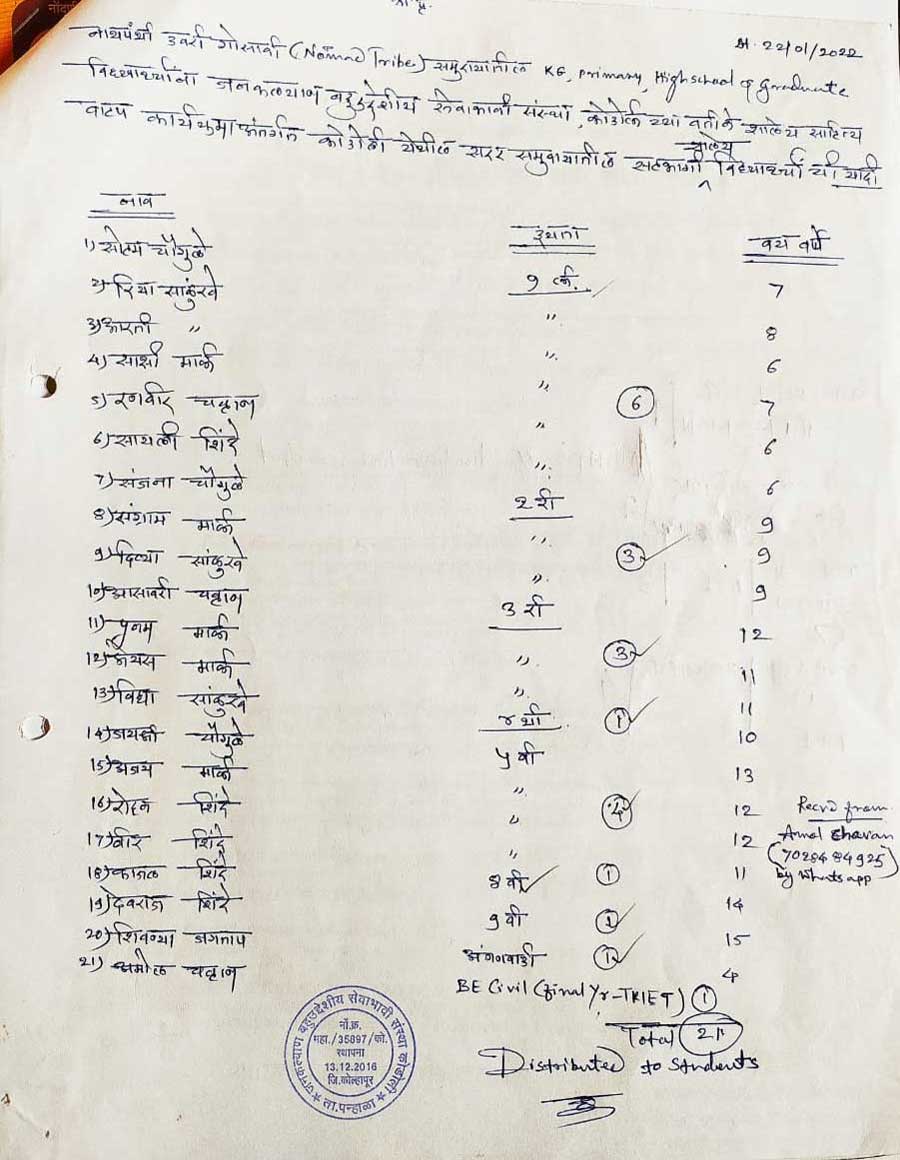 दि. 22/01/2022
नाथपंथी डवरी गोसावी (Nomad Tribe) समुदायातील KG, Primary, High school व graduate
विद्यार्थ्यांना जनकल्याण बहुउद्देशीय सेवाभावी संस्था, कोडोली यांच्या वतीने शालेय साहित्य
वाटप कार्यक्रमा अंतर्गत कोडोली येथील सदर समुदायातील सहभागी शालेय विद्यार्थ्यांची यादी
नाव इयत्ता वय वर्षे
1) सौम्य चौगुले 1 ली. 7
2) रिया सांळुखे " 8
3) आरती " " 6
4) साक्षी माळी " 7
5) रणवीर चव्हाण " 6 6
6) सायली शिंदे " 6
7) संजना चौगुले 2 री 9
8) संग्राम माळी " 9
9) दिव्या सांळुखे " 3 9
10) आसावरी चव्हाण 3 री 12
11) पूनम माळी " 3 11
12) श्रेयस माळी " 11
13) विद्या सांळुखे ४ थी 1 10
14) जयश्री चौगुले ५ वी 13
15) अजय माळी " 12
16) रोहन शिंदे " 4 12
17) वीर शिंदे " 11
18) काजल शिंदे 8 वी 1 14
19) देवराज शिंदे 9 वी 1 15
20) शिवन्या जगताप अंगणवाडी 1 4
21) अमोल चव्हाण BE Civil (Final Yr-TKIET) 1
Total 21
Distributed to Students
Recvd from
Amol Chavan
(7028484925)
by Whats app
जनकल्याण बहुउद्देशीय सेवाभावी संस्था कोडोली
नों.क्र.
महा./35897/को.
स्थापना
13.12.2016
जि.कोल्हापूर
ता.पन्हाळा